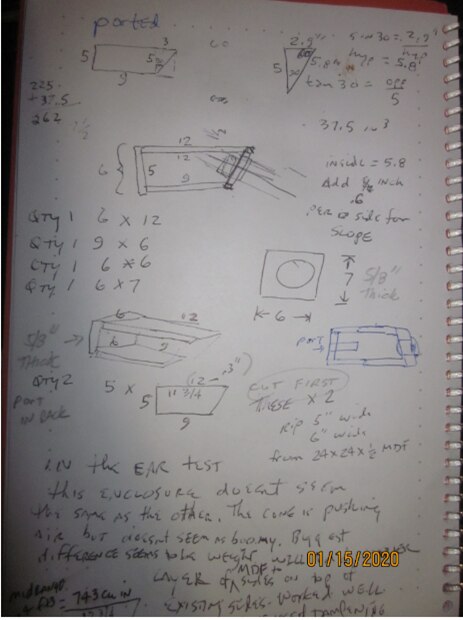 ported
3
5
9
225
+37.5
262
2.9"
5
5.8
30
sin 30 = 2.9"
hyp
hyp = 5.8"
tan 30 = opp
5
37.5 in³
12
1/2
6
5
12
9
inside = 5.8
Add 1/2 inch
.6
per side for
slope
QTY 1 6 x 12
QTY 1 9 x 6
QTY 1 6 x 6
QTY 1 6 x 7
7
5/8"
Thick
6
5/8"
Thick
6
12
9
port
QTY 2 5 x
5
12 - .3"
11 3/4
9
port
in back
CUT FIRST
These x 2
Rip 5" wide
6" wide
from 24x24x1/2 MDF
IN the EAR TEST
this enclosure doesnt seem
the same as the other. The cone is pushing
air but doesnt seem as boomy. Biggest
difference seems to be weight will
01/15/2020
layer MDF
sides on top of
existing sides. Worked well
743 cu in
dampening